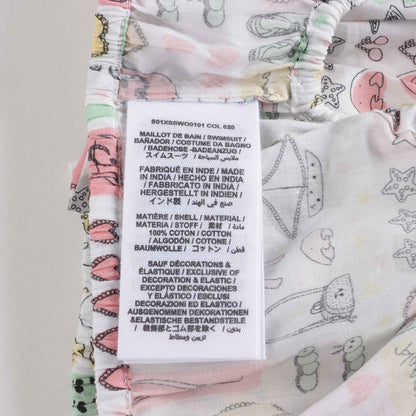 S01XSSWO0101 COL 620
MAILLOT DE BAIN / SWIMSUIT /
BAÑADOR / COSTUME DA BAGNO
/ BADEHOSE -BADEANZUG /
スイムスーツ / ملابس السباحة
FABRIQUÉ EN INDE / MADE
IN INDIA / HECHO EN INDIA
/ FABBRICATO IN INDIA /
HERGESTELLT IN INDIEN /
インド製 / صنع في الهند
MATIÈRE / SHELL / MATERIAL /
MATERIA / STOFF / 素材 / مادة
100% COTON / COTTON
/ ALGODÓN / COTONE /
BAUMWOLLE / コットン / قطن
SAUF DÉCORATIONS &
ÉLASTIQUE / EXCLUSIVE OF
DECORATION & ELASTIC /
EXCEPTO DECORACIONES
Y ELÁSTICO / ESCLUSI
DECORAZIONI ED ELASTICO /
AUSGENOMMEN DEKORATIONEN
&ELASTISCHE BESTANDTEILE
/ 装飾部とゴム部を除く / بدون
تزيين ومطاط